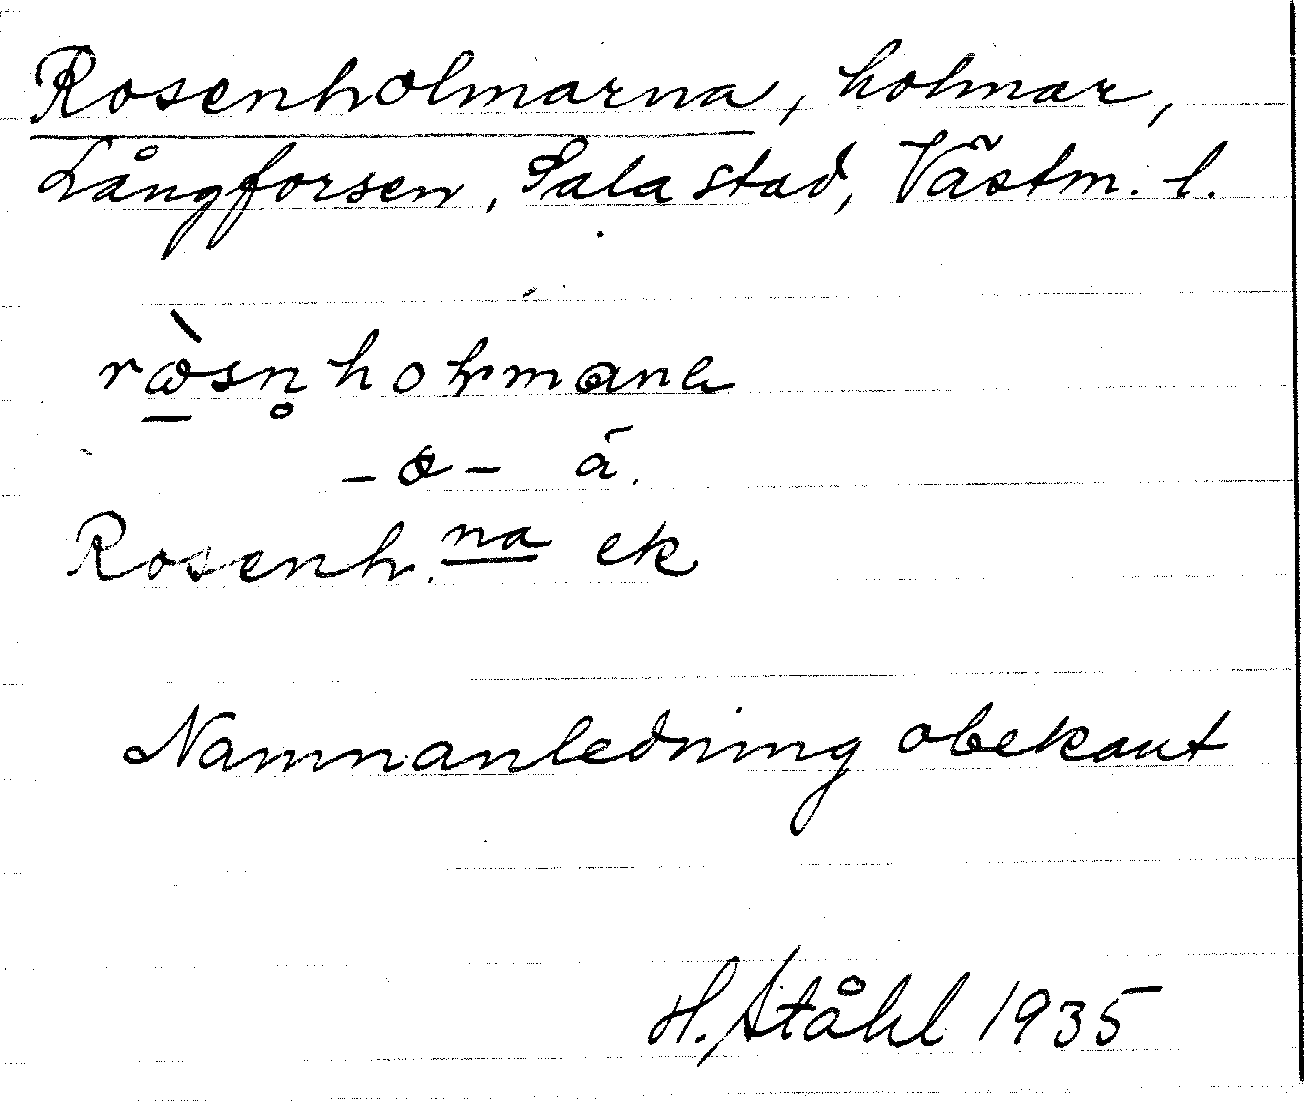 Rosenholmarna, holmar,
Långforsen, Sala stad, Västm. l.
-o- ä.
Rosenh. na ek
Namnanledning obekant
H. Ståhl 1935